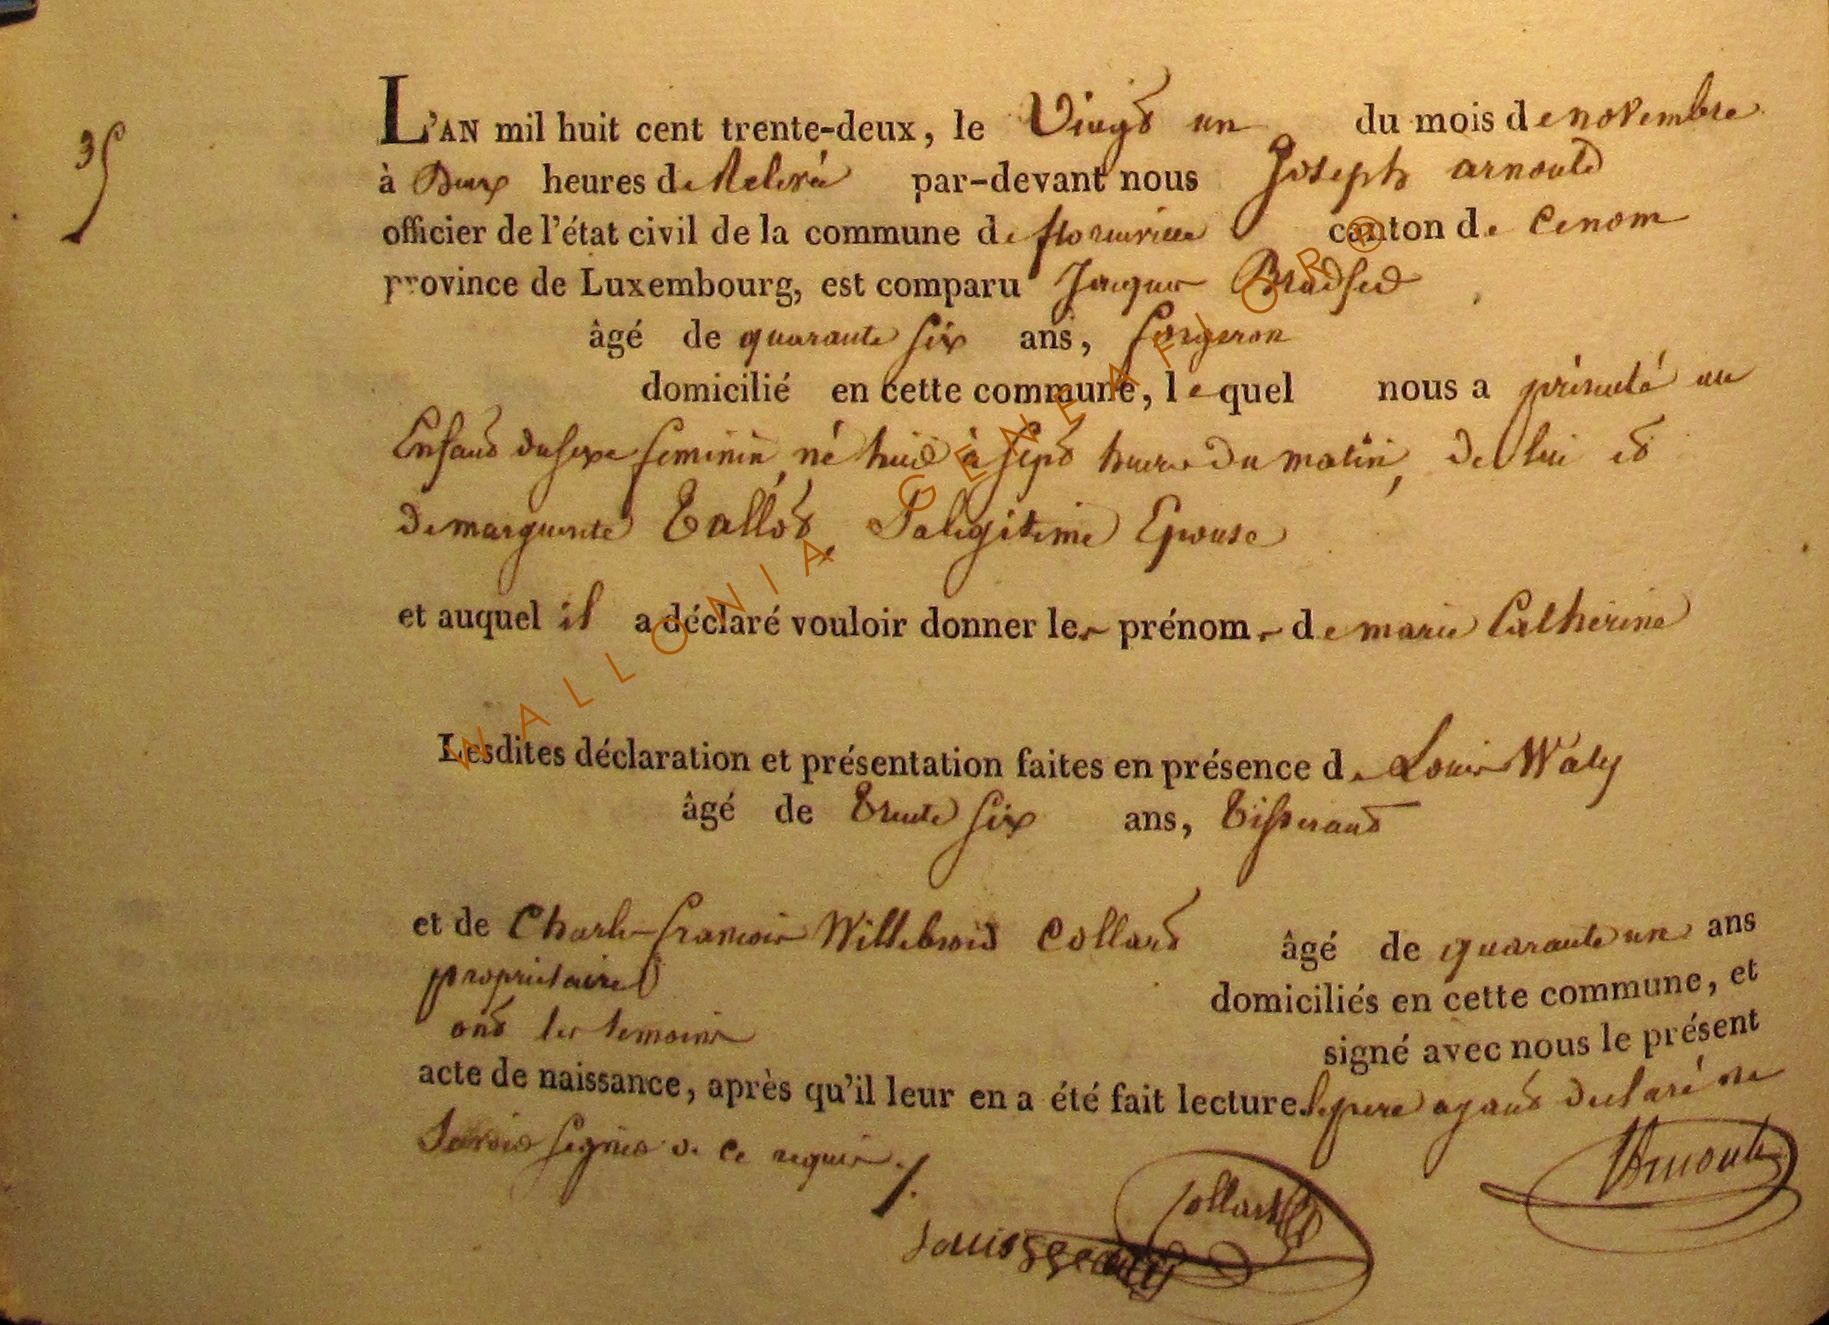 35
L'AN mil huit cent trente-deux, le Vingt un du mois de novembre
à Deux heures de Relevée par-devant nous Joseph arnould
officier de l'état civil de la commune de florenville canton de
province de Luxembourg, est comparu Jacques
âgé de quarante six ans, forgeron
domicilié en cette commune, lequel nous a présenté un
Enfant du sexe feminin, né huit à sept heures du matin, de lui et
de marguerite Tallot, Salegitime Epouse
et auquel il a déclaré vouloir donner les prénoms de marie Catherine
Lesdites déclaration et présentation faites en présence de Louis Waty
âgé de Trente six ans, Tisserand
et de Charles francois Willebrord Collard âgé de quarante un ans
proprietaire domiciliés en cette commune, et
ont les temoins signé avec nous le présent
acte de naissance, après qu'il leur en a été fait lecture. le pere ayant declaré ne
Savoir signer de ce requis ./.
Collard
Arnould
Louis
WALLONIA GENEALOGRO